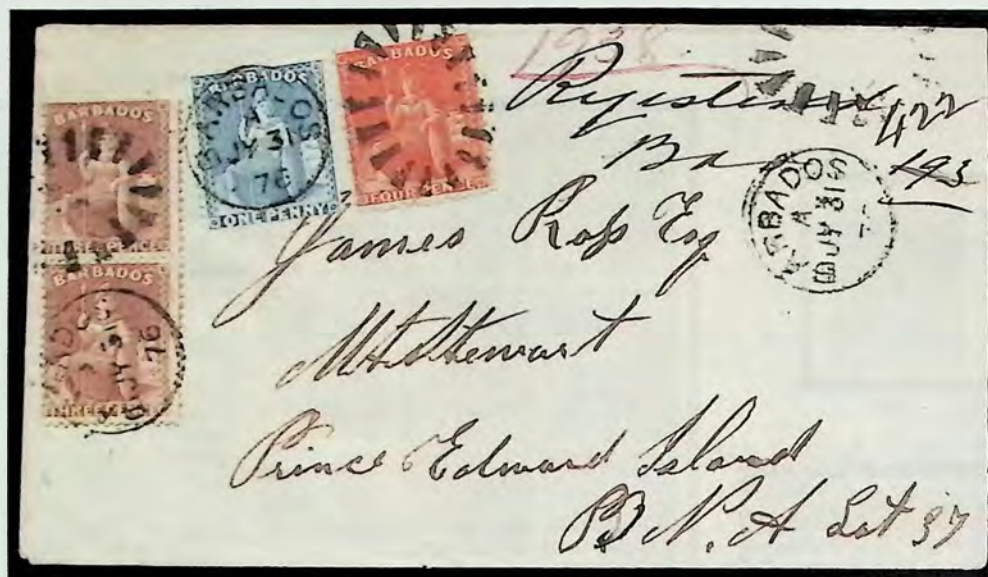 BARBADOS
THREE PENCE
BARBADOS
THREE PENCE
BARBADOS
ONE PENNY
BARBADOS
JY 31
76
BARBADOS
FOUR PENCE
1938
Registered
422
193
BARBADOS
A
JY 31
James Ross Esq
Mt Stewart
Prince Edward Island
B. N. A Lot 37